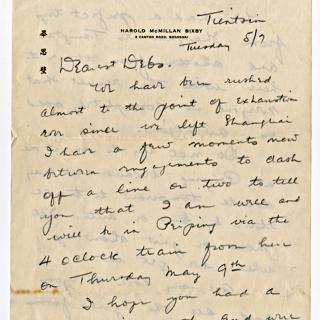 Tientsin
Tuesday 5/7
畢
思
璧
HAROLD McMILLAN BIXBY
3 CANTON ROAD, SHANGHAI
Dearest Debs.
We have been rushed
almost to the point of exhaustion
ever since we left Shanghai
I have a few moments now
between engagements to dash
off a line or two to tell
you that I am well and
will be in Peiping via the
4 oclock train from here
on Thursday May 9th
I hope you had a
and